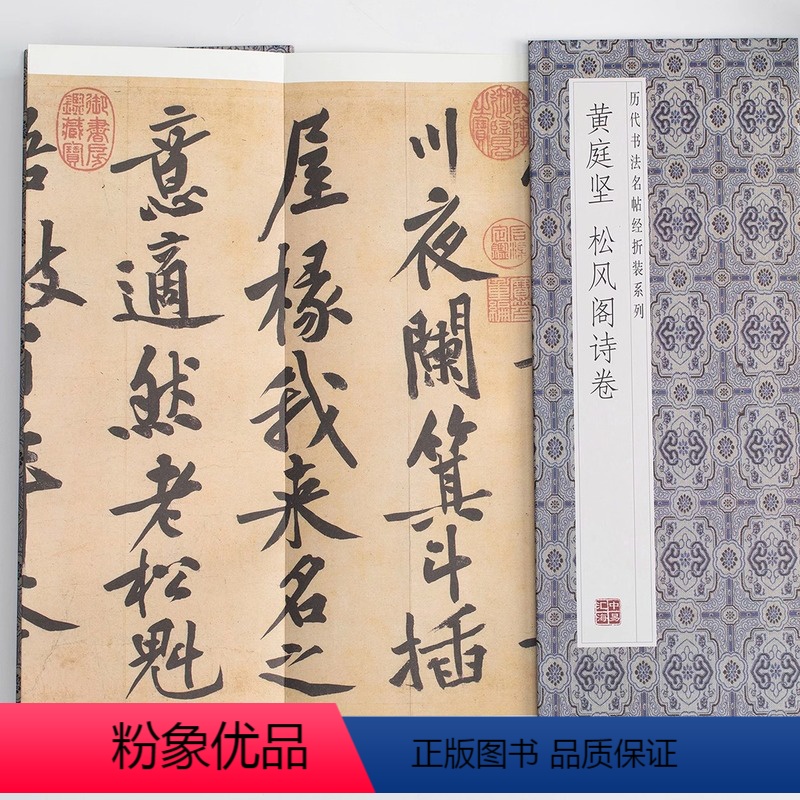 历代书法名帖经折装系列
黄庭坚 松风阁诗卷
川夜闌箕斗插
屋椽我来名之
意適然老松魁
御書房鑑藏寶
粉象优品
正版图书 品质保证